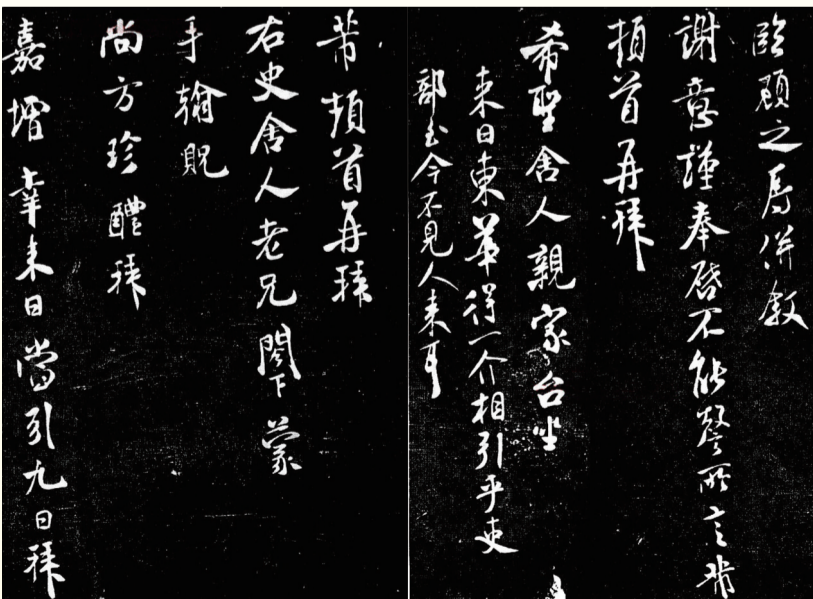 臨顧之辱併敘
謝意謹奉啓不能罄所言芾
頓首再拜
希聖舍人親家台坐
來日東華得一介相引乎吏
部去今不見人來耳
芾頓首再拜
右史舍人老兄閤下蒙
手翰貺
尚方珍醴拜
嘉增幸來日當引九日拜